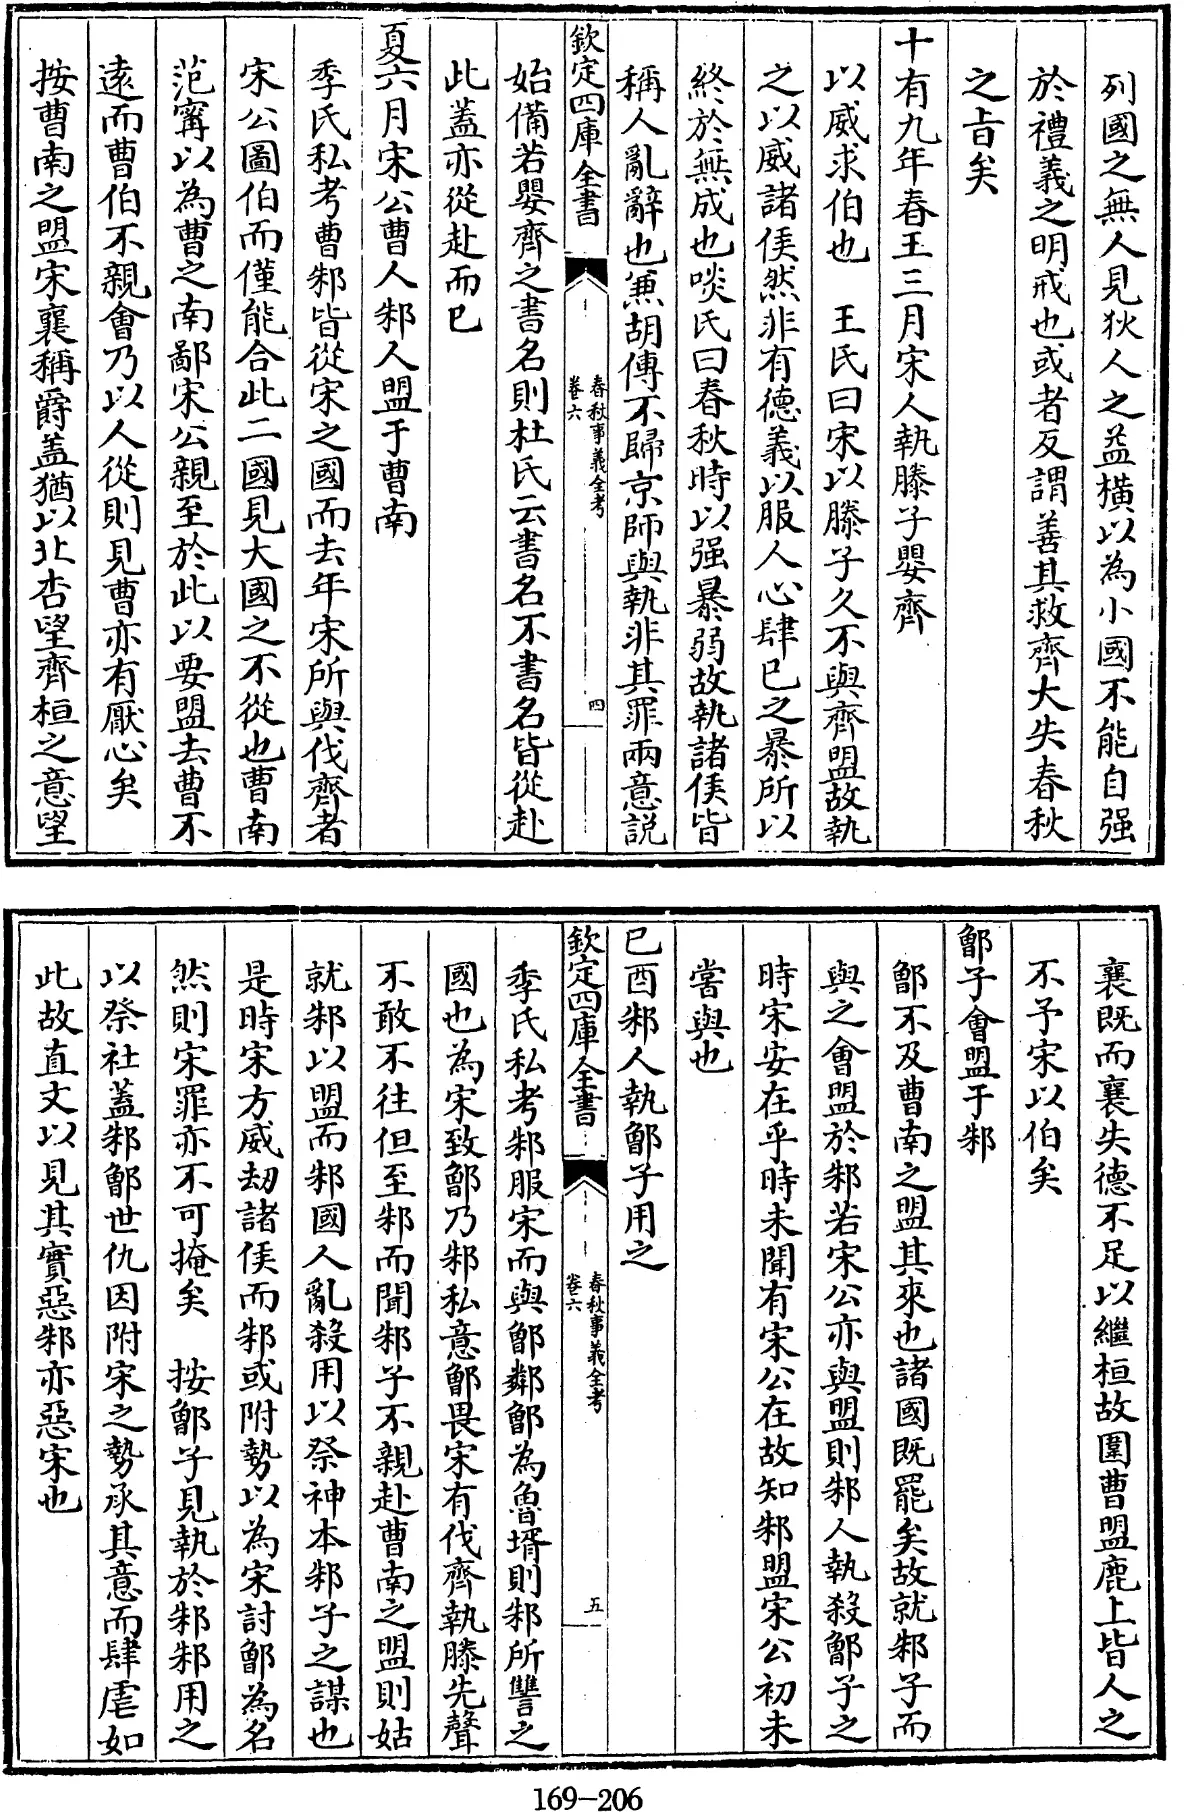 列國之無人見狄人之益橫以為小國不能自强
於禮義之明戒也或者反謂善其救齊大失春秋
之㫖矣
十有九年春王三月宋人執滕子嬰齊
以威求伯也　王氏曰宋以滕子久不與齊盟故執
之以威諸侯然非有德義以服人心肆已之暴所以
終於無成也啖氏曰春秋時以强暴弱故執諸侯皆
稱人亂辭也兼胡傳不歸京師與執非其罪兩意説
欽定四庫全書
春秋事義全考
卷六
四
始備若嬰齊之書名則杜氏云書名不書名皆從赴
此蓋亦從赴而已
夏六月宋公曹人邾人盟于曹南
季氏私考曹邾皆從宋之國而去年宋所與伐齊者
宋公圖伯而僅能合此二國見大國之不從也曹南
范寗以為曹之南鄙宋公親至於此以要盟去曹不
遠而曹伯不親會乃以人從則見曹亦有厭心矣
按曹南之盟宋襄稱爵蓋猶以北杏望齊桓之意望
襄既而襄失德不足以繼桓故圍曹盟鹿上皆人之
不予宋以伯矣
鄫子會盟于邾
鄫不及曹南之盟其來也諸國既罷矣故就邾子而
與之會盟於邾若宋公亦與盟則邾人執殺鄫子之
時宋安在乎時未聞有宋公在故知邾盟宋公初未
嘗與也
已酉邾人執鄫子用之
欽定四庫全書
春秋事義全考
卷六
五
季氏私考邾服宋而與鄫鄰鄫為魯壻則邾所讐之
國也為宋致鄫乃邾私意鄫畏宋有伐齊執滕先聲
不敢不往但至邾而聞邾子不親赴曹南之盟則姑
就邾以盟而邾國人亂殺用以祭神本邾子之謀也
是時宋方威刼諸侯而邾或附勢以為宋討鄫為名
然則宋罪亦不可掩矣　按鄫子見執於邾邾用之
以祭社蓋邾鄫世仇因附宋之勢承其意而肆虐如
此故直文以見其實惡邾亦惡宋也
169-206